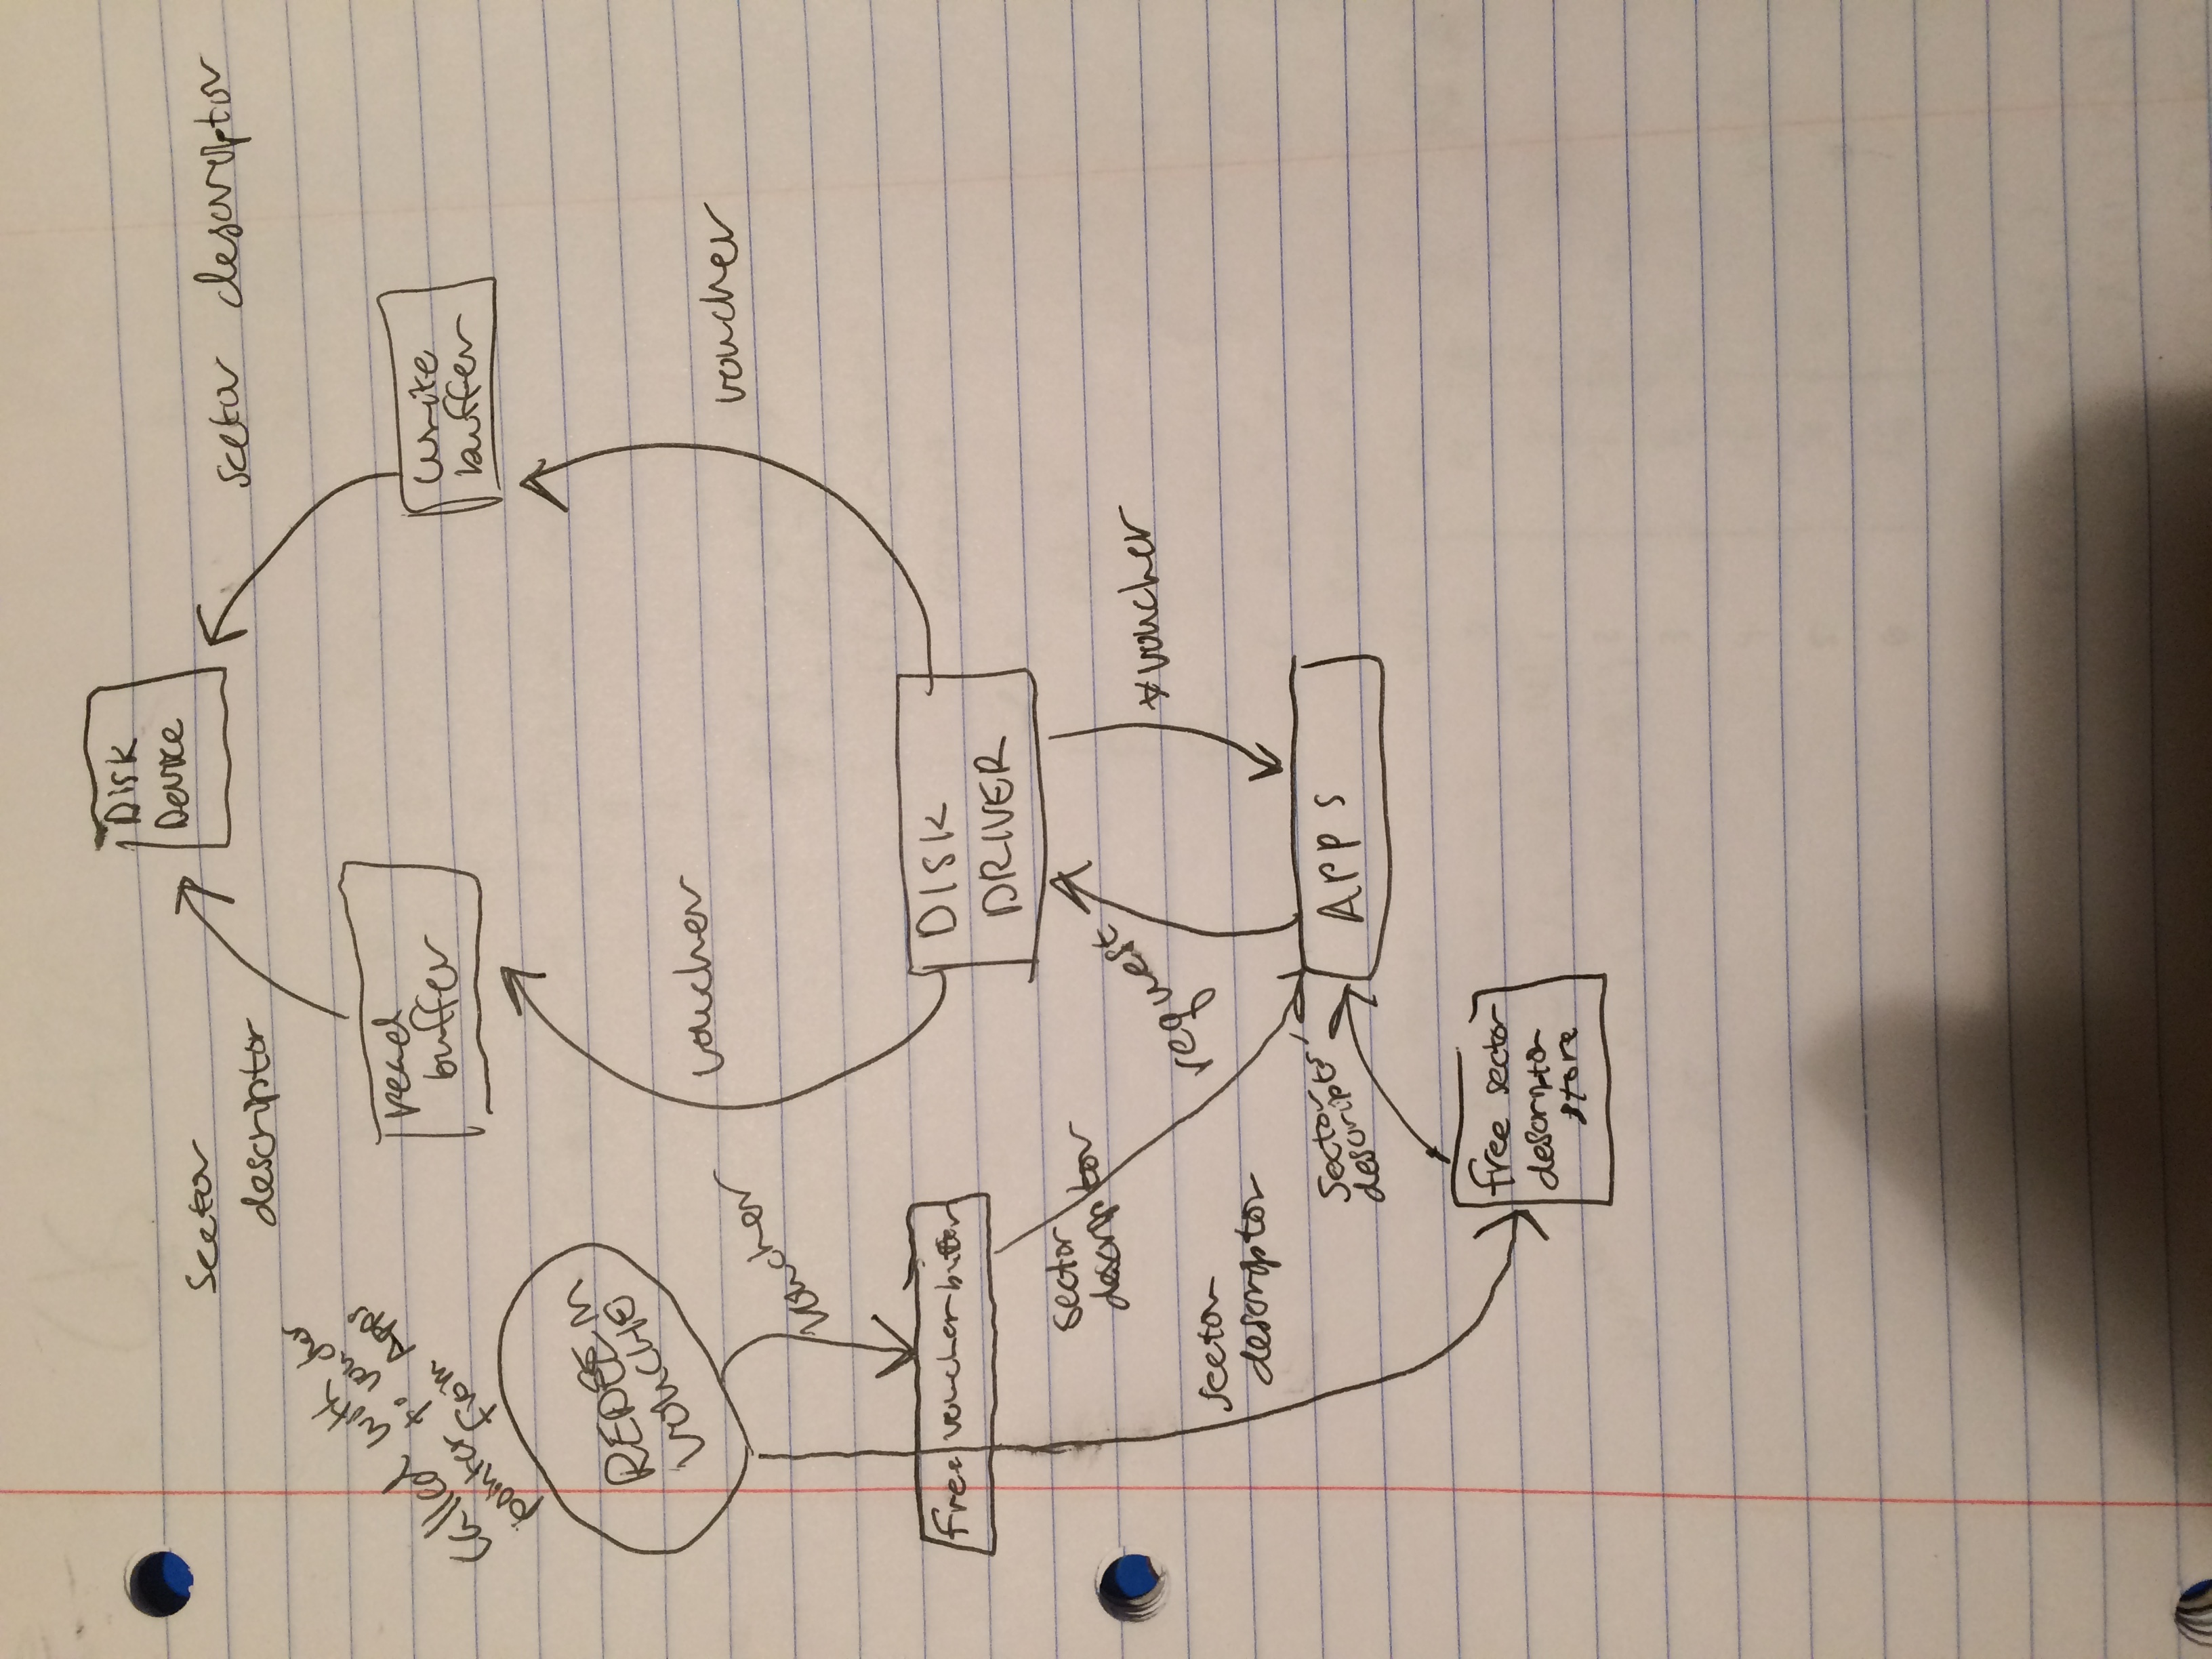 Disk
Device
Sector
descriptor
sector descriptor
Called with
pointer to voucher
from Apps
read
buffer
write
buffer
REDEEM
VOUCHE
voucher
voucher
voucher
free voucher buffer
DISK
DRIVER
sector
descriptor
request
*voucher
sector
descriptor
Sector
descriptor
APPS
free sector
descriptor
store